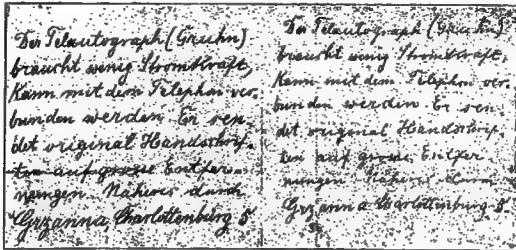 Der Telautograph (Gruhn)
braucht wenig Stromkraft,
Kann mit dem Telephon ver-
bunden werden. Er sen-
det original Handschrif-
ten auf grosse Entfer-
nungen. Näheres durch
Grzanna, Charlottenburg 5
Der Telautograph (Gruhn)
braucht wenig Stromkraft,
Kann mit dem Telephon ver-
bunden werden. Er sen-
det original Handschrif-
ten auf grosse Entfer
nungen Näheres durch
Grzanna Charlottenburg 5